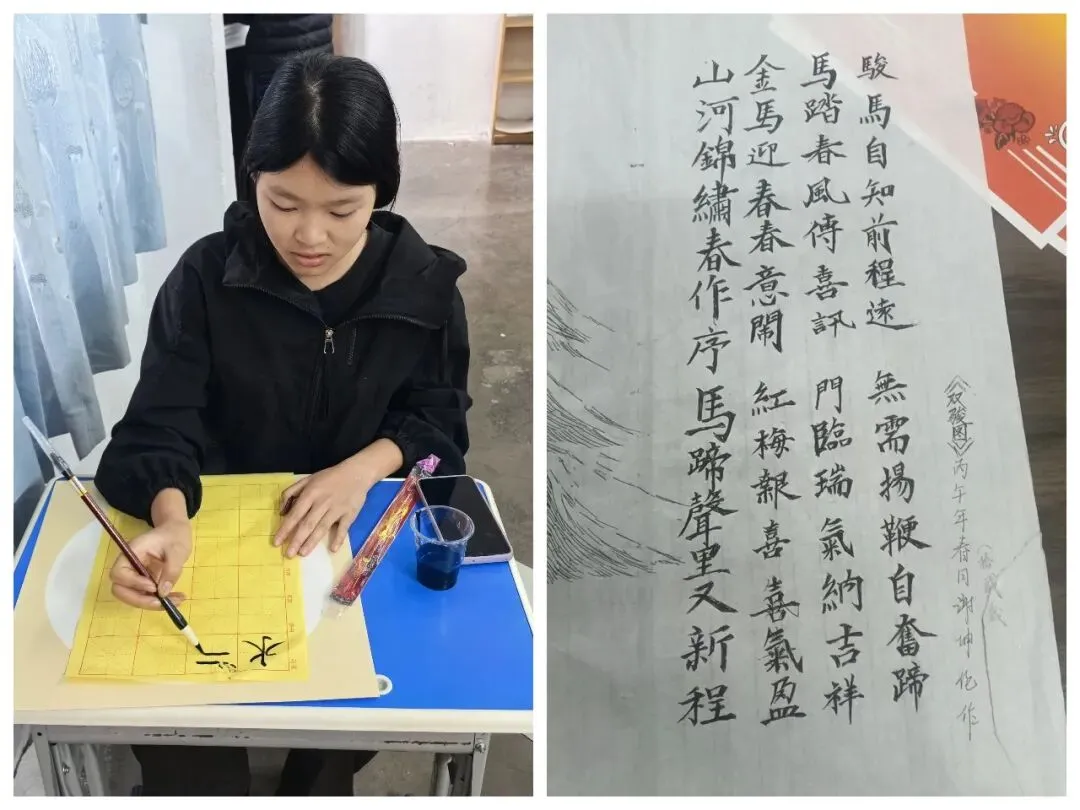 水
《双骏图》丙午年春月谢坤作
駿馬自知前程遠 無需揚鞭自奮蹄
馬踏春風傳喜訊 門臨瑞氣納吉祥
金馬迎春春意鬧 紅梅報喜喜氣盈
山河錦繡春作序 馬蹄聲里又新程